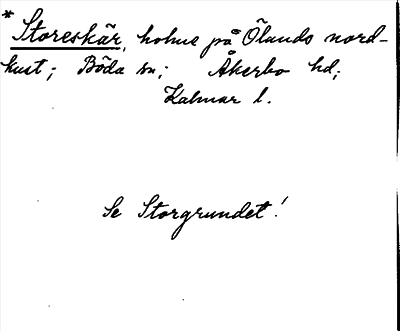 * Storeskär, holme på Ölands nord-
kust; Böda sn; Åkerbo hd;
Kalmar l.
Se Storgrundet!